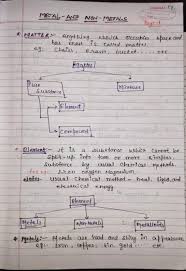 METAL AND NON-METALS
* MATTER:- anything which occupies space and
has mass is called matter.
eg: Chair, bucket.... etc
Matter
Pure Substance
Mixture
Element
Compound
* Element:- It is a substance which cannot be
split-up into two or more simpler
substance by usual chemical methods.
Iron oxygen
usual chemical method - heat, light and
electrical energy
Element
Metals
Non-metals
Metalloids
* Metals:- Metals are hard and shiny in appearance,
eg:- Iron, copper, tin, gold.... etc.